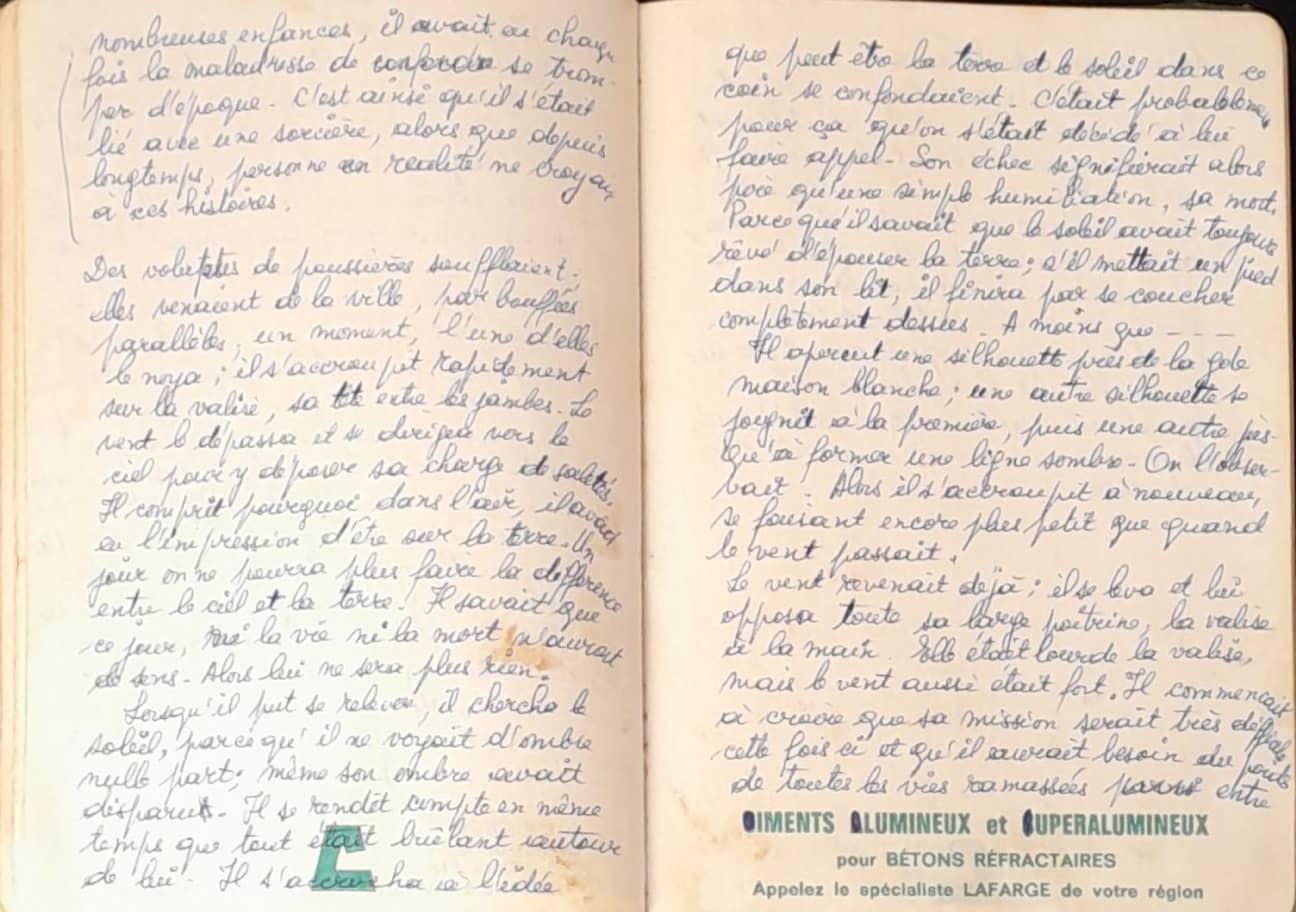 nombreuses enfances, il avait eu chaque
fois la maladresse de confondre se trom-
per d'époque. C'est ainsi qu'il s'était
lié avec une sorcière, alors que depuis
longtemps, personne en realité ne croyait
a ces histoires.
Des volutes de poussieres soufflaient;
elles venaient de la ville, par bouffées
parallèles; un moment, l'une d'elles
le noya; il s'accroupit rapidement
sur la valise, sa tête entre les jambes. Le
vent le dépassa et se dirigea vers le
ciel pour y déposer sa charge de saletés.
Il comprit pourquoi dans l'air, il avait
eu l'impression d'être sur la terre. Un
jour on ne pourra plus faire la différence
entre le ciel et la terre. Il savait que
ce jour, ni la vie ni la mort n'aurait
de sens. Alors lui ne sera plus rien.
Lorsqu'il put se relever, il chercha le
soleil, parce qu'il ne voyait d'ombre
nulle part; même son ombre avait
disparu. Il se rendit compte en même
temps que tout était brûlant autour
de lui. Il s'accrocha à l'idée
que peut être la terre et le soleil dans ce
coin se confondaient. C'était probablement
pour ça qu'on s'était décidé à lui
faire appel. Son échec signifierait alors
pire qu'une simple humiliation, sa mort.
Parce qu'il savait que le soleil avait toujours
rêvé d'épouser la terre; s'il mettait un pied
dans son lit, il finira par se coucher
completement dessus. A moins que ----
Il aperçut une silhouette près de la
maison blanche; une autre silhouette se
joignit à la première, puis une autre jus-
qu'à former une ligne sombre. On l'obser-
vait. Alors il s'accroupit à nouveau,
se faisant encore plus petit que quand
le vent passait.
Le vent revenait déjà; il se leva et lui
opposa toute sa large poitrine, la valise
à la main. Elle était lourde la valise,
mais le vent aussi était fort. Il commençait
à croire que sa mission serait très
cette fois ci et qu'il aurait besoin du
de toutes les vies ramassées entre
CIMENTS ALUMINEUX et SUPERALUMINEUX
pour BÉTONS RÉFRACTAIRES
Appelez le spécialiste LAFARGE de votre région